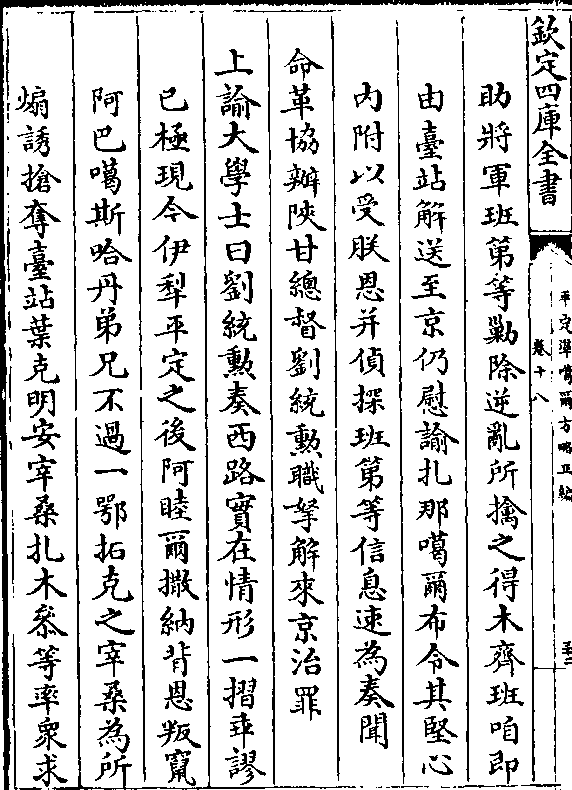 欽定四庫全書
平定準噶爾方略正編
卷十八
助將軍班第等勦除逆亂所擒之得木齊班咱即
由臺站解送至京仍慰諭扎那噶爾布令其堅心
内附以受朕恩并偵探班第等信息速為奏聞
命革協辦陝甘總督劉統勲職拏解來京治罪
上諭大學士曰劉統勲奏西路實在情形一摺乖謬
已極現今伊犁平定之後阿睦爾撒納背恩叛竄
阿巴噶斯哈丹弟兄不過一鄂拓克之宰桑為所
煽誘搶奪臺站葉克明安宰桑扎木叅等率衆求